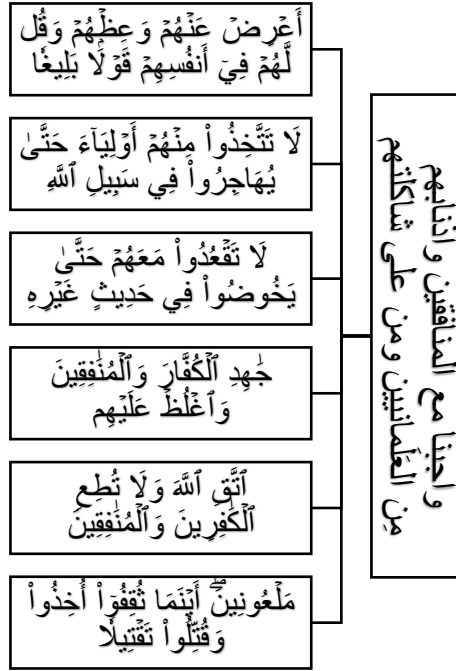 واجبنا مع المنافقين وأذنابهم
مِن العَلَمانيين ومن على شاكلتهم
أَعۡرِضۡ عَنۡهُمۡ وَعِظۡهُمۡ وَقُل
لَّهُمۡ فِيٓ أَنفُسِهِمۡ قَوۡلَۢا بَلِيغٗا
لَا تَتَّخِذُواْ مِنۡهُمۡ أَوۡلِيَآءَ حَتَّىٰ
يُهَاجِرُواْ فِي سَبِيلِ ٱللَّهِ
لَا تَقۡعُدُواْ مَعَهُمۡ حَتَّىٰ
يَخُوضُواْ فِي حَدِيثٍ غَيۡرِهِ
جَٰهِدِ ٱلۡكُفَّارَ وَٱلۡمُنَٰفِقِينَ
وَٱغۡلُظۡ عَلَيۡهِم
ٱتَّقِ ٱللَّهَ وَلَا تُطِعِ
ٱلۡكَٰفِرِينَ وَٱلۡمُنَٰفِقِينَ
مَلۡعُونِينَۖ أَيۡنَمَا ثُقِفُوٓاْ أُخِذُواْ
وَقُتِّلُواْ تَقۡتِيلٗا